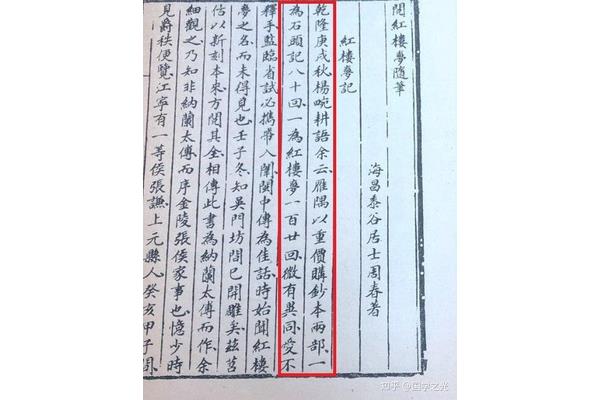 閱紅樓夢隨筆
海昌黍谷居士周春著
紅樓夢記
乾隆庚戌秋楊畹耕語余云雁隅以重價購鈔本兩部一
為石頭記八十回一為紅樓夢一百廿回微有異同愛不
釋手監臨省試必攜帶入闈闈中傳為佳話時始聞紅樓
夢之名而未得見也壬子冬知吳門坊間已開雕矣茲苕
估以新刻本來方閱其全相傳此書為納蘭太傅而作余
細觀之乃知非納蘭太傅而序金陵張侯家事也憶少時
見爵秩便覽江寧有一等侯張謙上元縣人癸亥甲子間
知乎 @国学之光